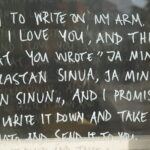 TO WRITE ON MY ARM.
I LOVE YOU, AND TH
YOU WROTE " JA MIN
LASTAN SINUA, JA MIN
N SINUN", AND I PROMIS
WRITE IT DOWN AND TAKE
AND SEND IT TO YOU.